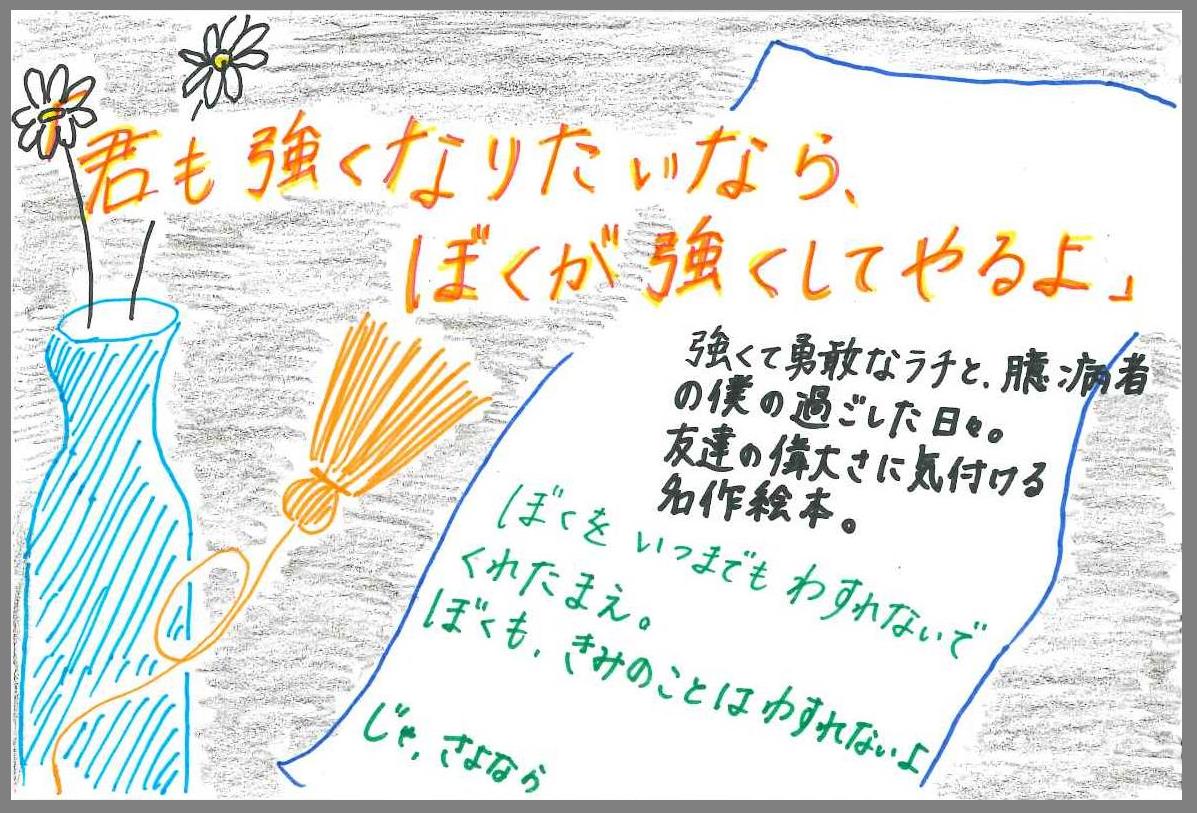 君も強くなりたいなら、
ぼくが強くしてやるよ」
強くて勇敢なラチと、臆病者
の僕の過ごした日々。
友達の偉大さに気付ける
名作絵本。
ぼくをいつまでもわすれないで
くれたまえ。
ぼくも、きみのことはわすれないよ
じゃ、さよなら